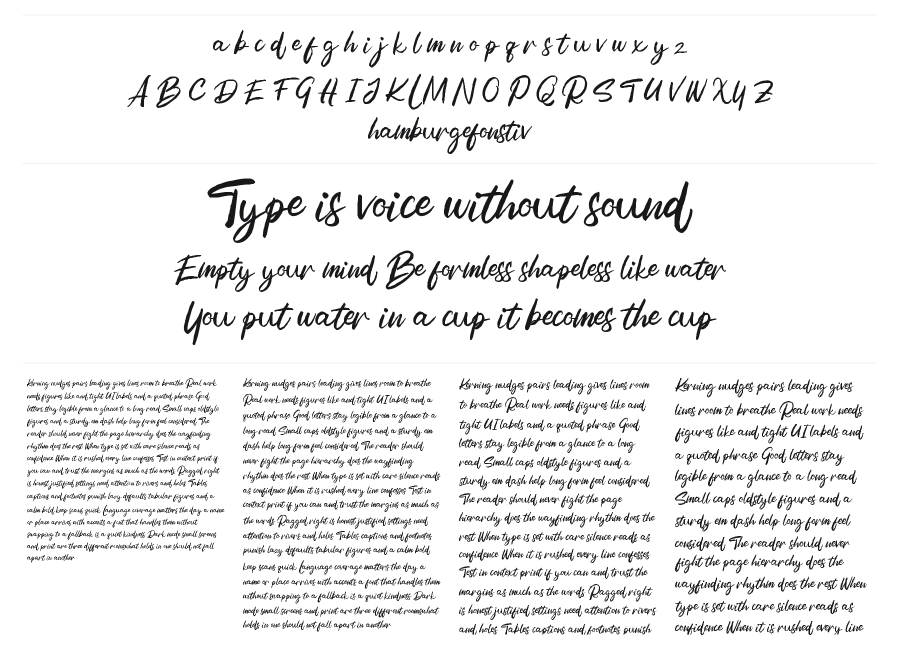 a b c d e f g h i j k l m n o p q r s t u v w x y z
A B C D E F G H I J K L M N O P Q R S T U V W X Y Z
hamburgefonstiv
Type is voice without sound
Empty your mind Be formless shapeless like water
You put water in a cup it becomes the cup
Kerning nudges pairs leading gives lines room to breathe Real work
needs figures like and tight UI labels and a quoted phrase God
letters stay legible from a glance to a long read Small caps oldstyle
figures and a sturdy em dash help long form feel considered The
reader should never fight the page hierarchy does the wayfinding
rhythm does the rest When type is set with care silence reads as
confidence When it is rushed every line confesses Test in context print if
you can and trust the margins as much as the words Ragged right
is honest justified settings need attention to rivers and holes Tables
captions and footnotes punish lazy defaults tabular figures and a
calm bold keep scans quick Language coverage matters the day a name
or place arrives with accents a font that handles them without
snapping to a fallback is a quiet kindness Dark mode small screens
and print are three different rooms what holds in one should not fall
apart in another
Kerning nudges pairs leading gives lines room to breathe
Real work needs figures like and tight UI labels and a
quoted phrase God letters stay legible from a glance to a
long read Small caps oldstyle figures and a sturdy em
dash help long form feel considered The reader should
never fight the page hierarchy does the wayfinding
rhythm does the rest When type is set with care silence reads
as confidence When it is rushed every line confesses Test in
context print if you can and trust the margins as much as
the words Ragged right is honest justified settings need
attention to rivers and holes Tables captions and footnotes
punish lazy defaults tabular figures and a calm bold
keep scans quick Language coverage matters the day a
name or place arrives with accents a font that handles them
without snapping to a fallback is a quiet kindness Dark
mode small screens and print are three different rooms what
holds in one should not fall apart in another
Kerning nudges pairs leading gives lines room
to breathe Real work needs figures like and
tight UI labels and a quoted phrase God
letters stay legible from a glance to a long
read Small caps oldstyle figures and a
sturdy em dash help long form feel considered
The reader should never fight the page
hierarchy does the wayfinding rhythm does the
rest When type is set with care silence reads as
confidence When it is rushed every line confesses
Test in context print if you can and trust the
margins as much as the words Ragged right
is honest justified settings need attention to rivers
and holes Tables captions and footnotes punish
Kerning nudges pairs leading gives
lines room to breathe Real work needs
figures like and tight UI labels and
a quoted phrase God letters stay
legible from a glance to a long read
Small caps oldstyle figures and a
sturdy em dash help long form feel
considered The reader should never
fight the page hierarchy does the
wayfinding rhythm does the rest When
type is set with care silence reads as
confidence When it is rushed every line